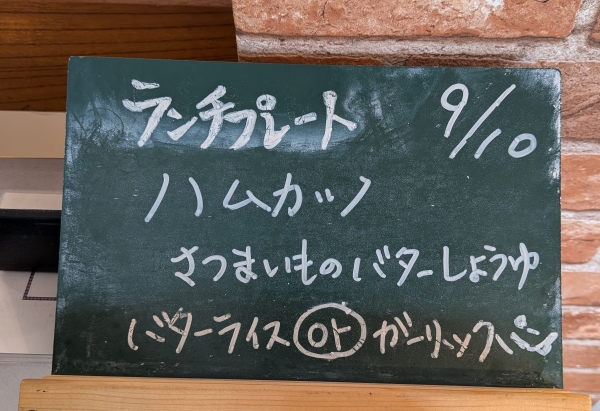 ランチプレート 9/10
ハムカツ
さつまいものバターしょうゆ
バターライス or ガーリックパン